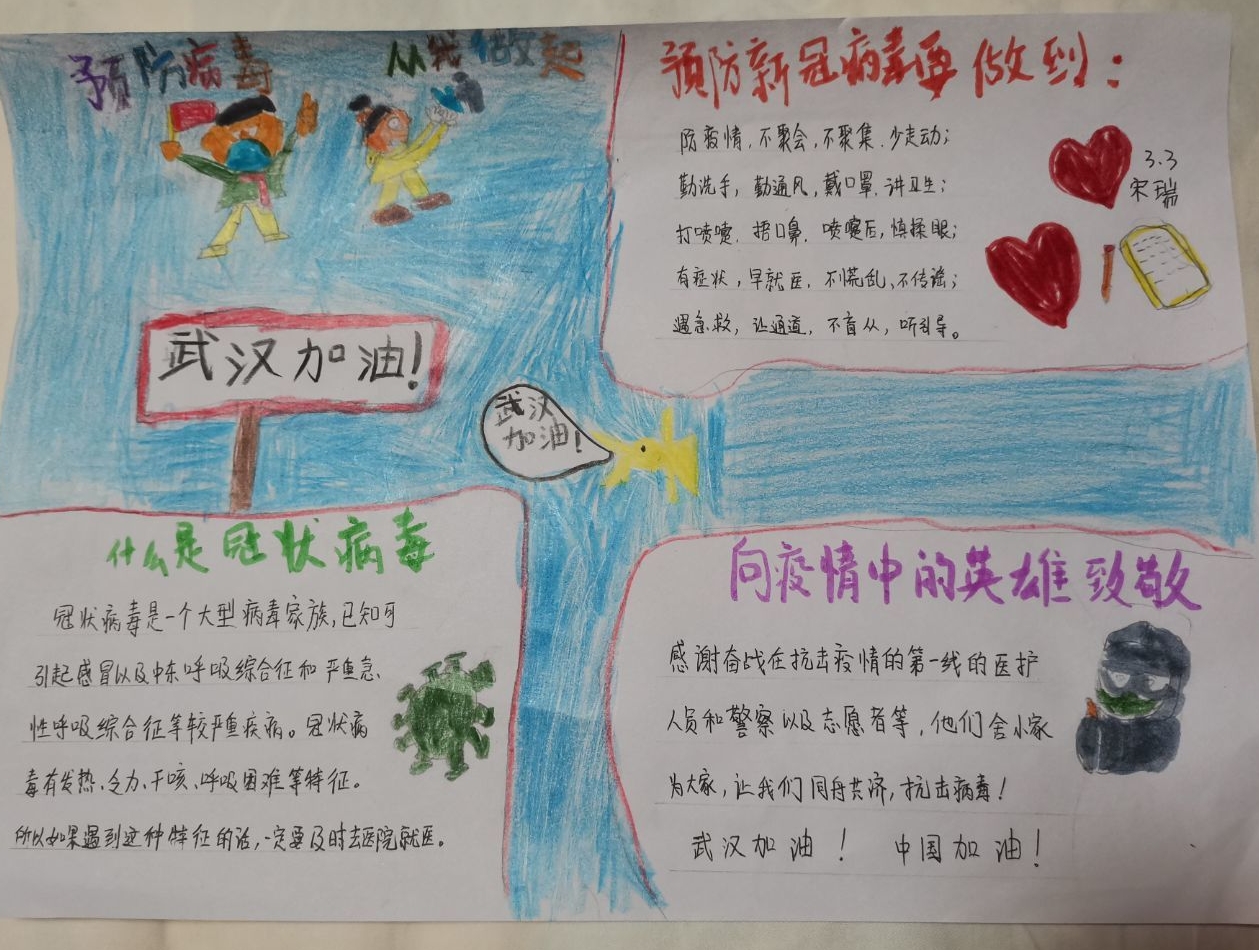 预防病毒 从我做起
武汉加油！
武汉
加油！
预防新冠病毒要做到：
防疫情，不聚会，不聚集，少走动；
勤洗手，勤通风，戴口罩，讲卫生；
打喷嚏，捂口鼻，喷嚏后，慎揉眼；
有症状，早就医，不慌乱，不传谣；
遇急救，让通道，不盲从，听引导。
3.3
宋瑞
什么是冠状病毒
冠状病毒是一个大型病毒家族，已知可
引起感冒以及中东呼吸综合征和严重急
性呼吸综合征等较严重疾病。冠状病
毒有发热、乏力、干咳、呼吸困难等特征。
所以如果遇到这种特征的话，一定要及时去医院就医。
向疫情中的英雄致敬
感谢奋战在抗击疫情的第一线的医护
人员和警察以及志愿者等，他们舍小家
为大家，让我们同舟共济，抗击病毒！
武汉加油！ 中国加油！